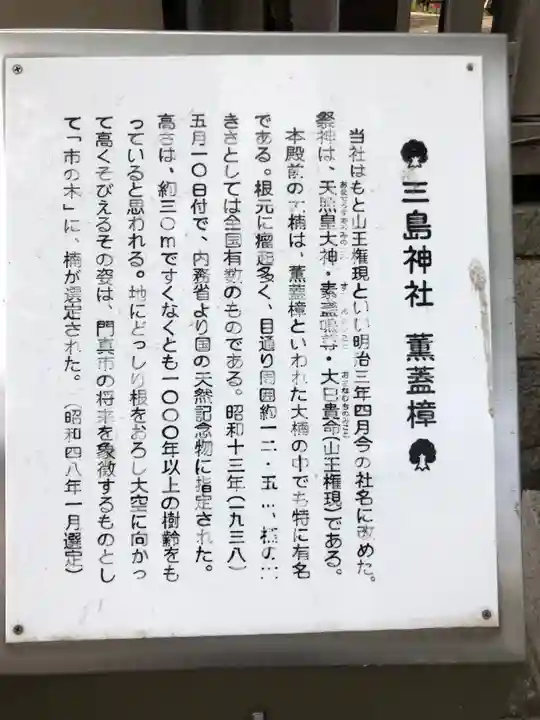 三島神社 薫蓋樟
当社はもと山王権現といい明治三年四月今の社名に改めた。
祭神は、天照皇大神・素盞嗚尊・大己貴命(山王権現)である。
本殿前の大楠は、薫蓋樟といわれた大楠の中でも特に有名
である。根元に瘤起多く、目通り周囲約一二・五
きさとしては全国有数のものである。昭和十三年(一九三八)
五月一〇日付で、内務省より国の天然記念物に指定された。
高さは、約三〇mですくなくとも一〇〇〇年以上の樹齢をも
っていると思われる。地にどっしり根をおろし大空に向かっ
て高くそびえるその姿は、門真市の将来を象徴するものとし
て「市の木」に、楠が選定された。(昭和四八年一月選定)